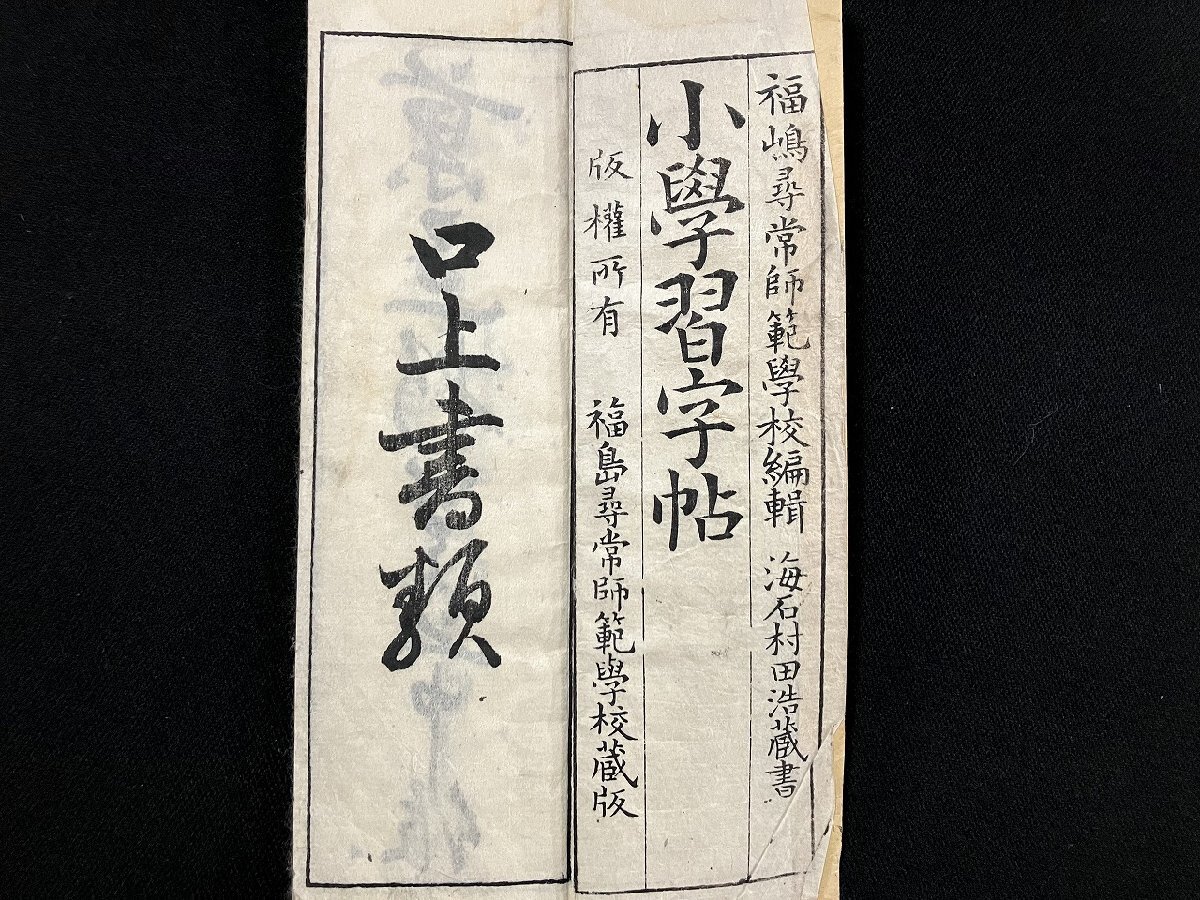 福嶋尋常師範學校編輯 海石村田浩蔵書
小學習字帖
版權所有 福島尋常師範學校蔵版
口上書類